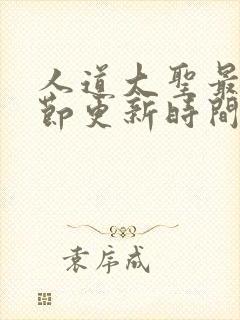 人道大聖最
節更新時間
袁序成